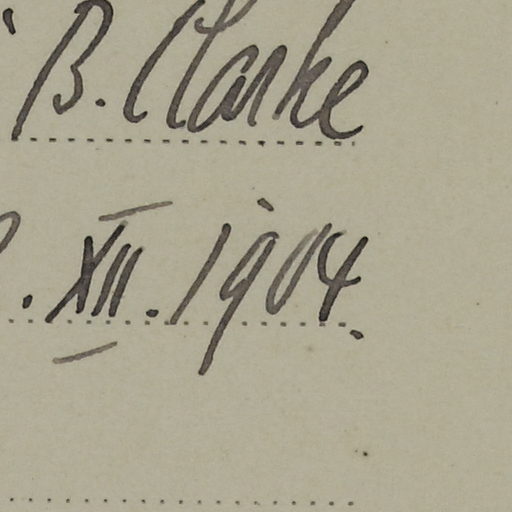 B. Clarke
. XII. 1904.